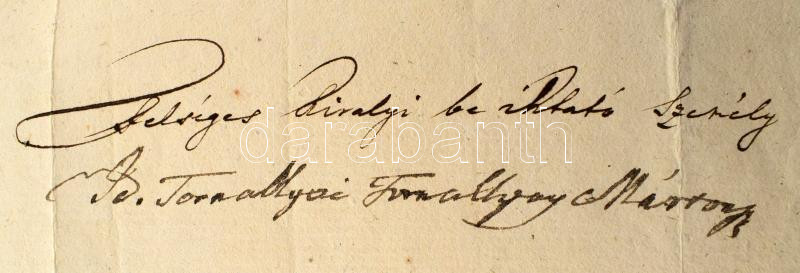 Felséges Királyi be iktató Személy
Id. Tornallyai Tornallyay Márton
darabanth